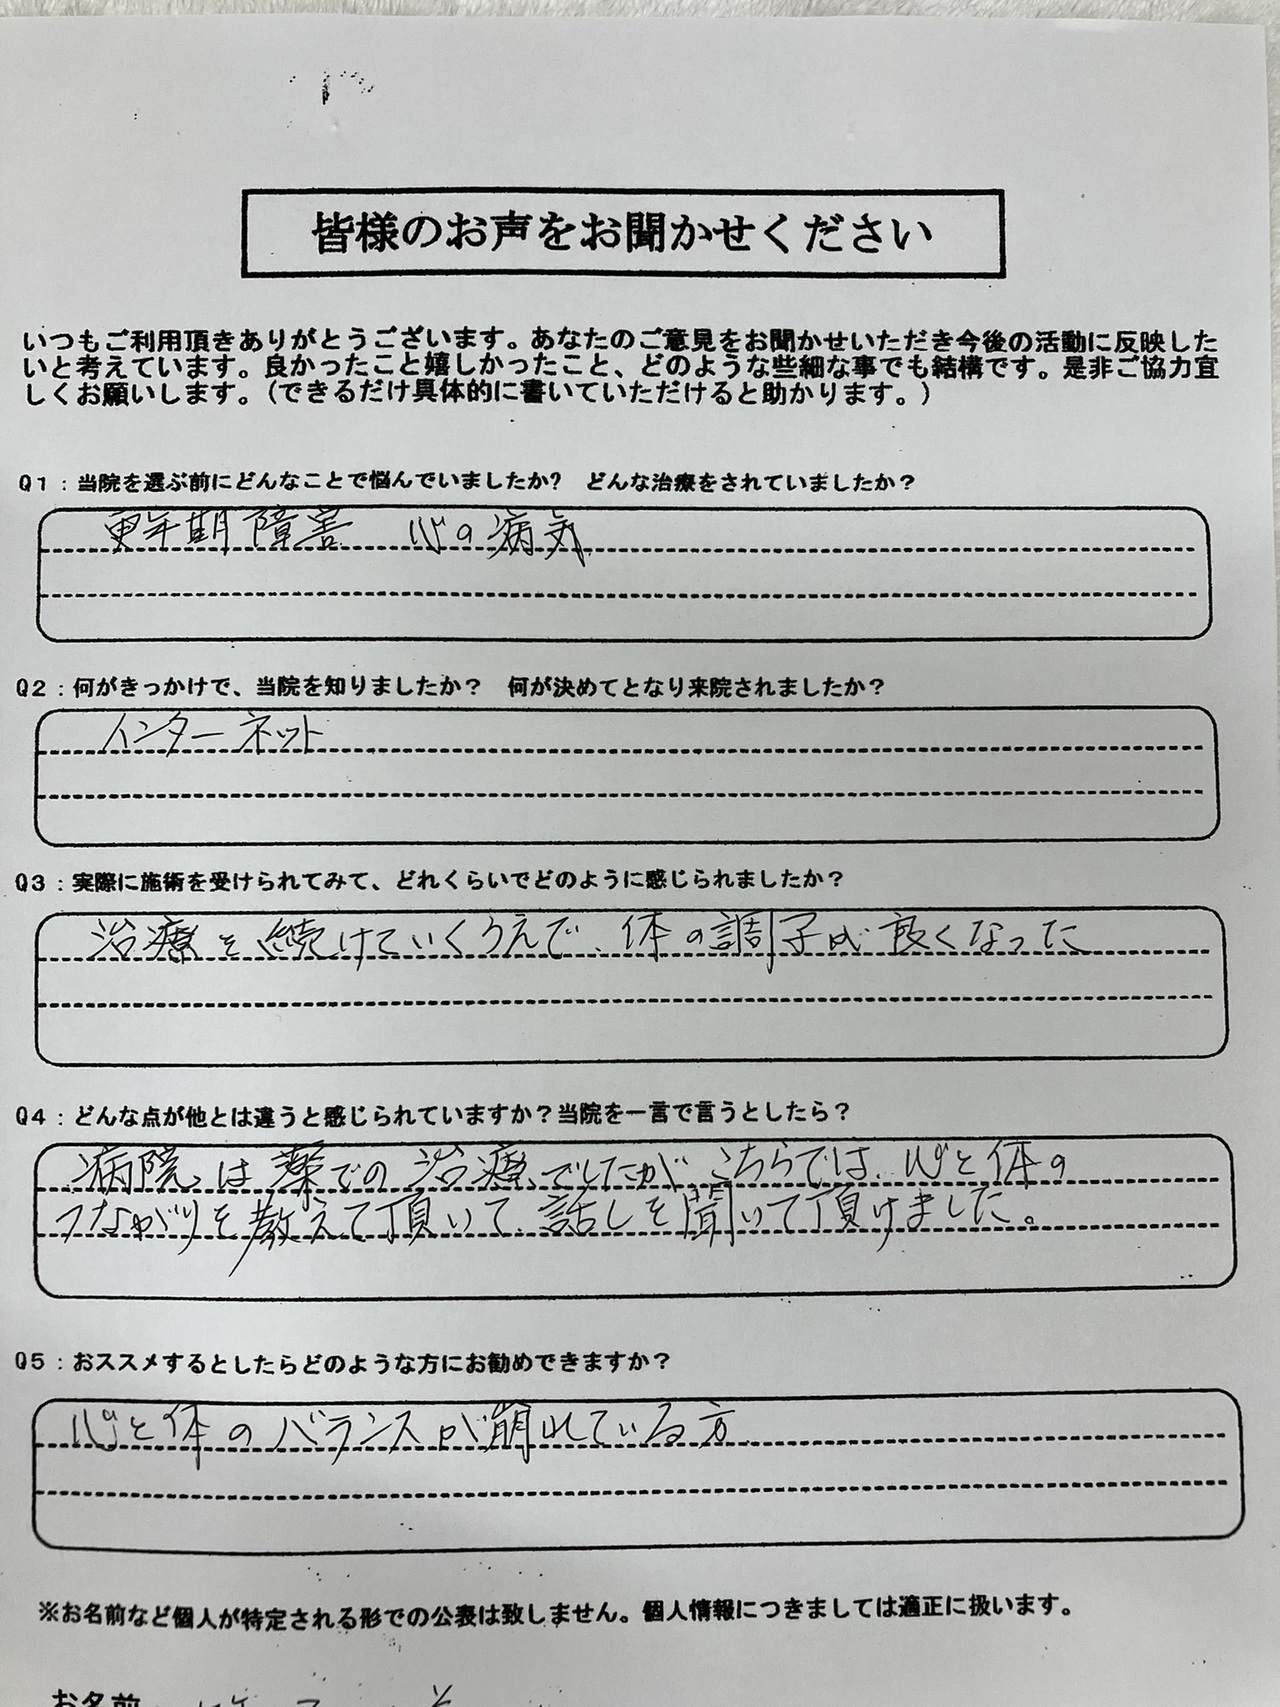 皆様のお声をお聞かせください
いつもご利用頂きありがとうございます。あなたのご意見をお聞かせいただき今後の活動に反映した
いと考えています。良かったこと嬉しかったこと、どのような些細な事でも結構です。是非ご協力宜
しくお願いします。（できるだけ具体的に書いていただけると助かります。）
Q1：当院を選ぶ前にどんなことで悩んでいましたか？　どんな治療をされていましたか？
更年期障害　心の病気
Q2：何がきっかけで、当院を知りましたか？　何が決めてとなり来院されましたか？
インターネット
Q3：実際に施術を受けられてみて、どれくらいでどのように感じられましたか？
治療を続けていくうえで、体の調子が良くなった
Q4：どんな点が他とは違うと感じられていますか？当院を一言で言うとしたら？
病院は薬での治療でしたが、こちらでは、心と体の
つながりを教えて頂いて、話しを聞いて頂けました。
Q5：おススメするとしたらどのような方にお勧めできますか？
心と体のバランスが崩れている方
※お名前など個人が特定される形での公表は致しません。個人情報につきましては適正に扱います。
お名前